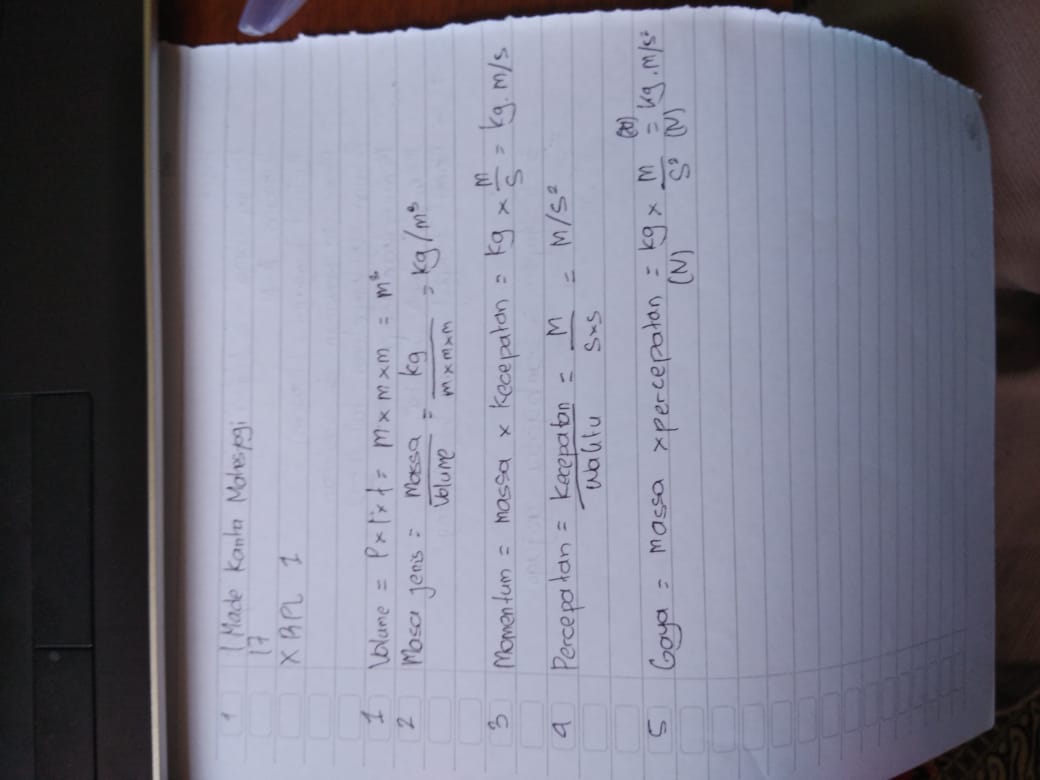 1 I Made Kanta
17
X RPL 1
1 Volume = P x l x t = m x m x m = m³
2 Masa jenis = Massa / Volume = kg / m x m x m = kg/m³
3 Momentum = massa x kecepatan = kg x m/s = kg. m/s
4 Percepatan = kecepatan / waktu = M / s x s = M/S²
5 Gaya = massa x percepatan = kg x M/S² = kg. m/s²
(N) (N)